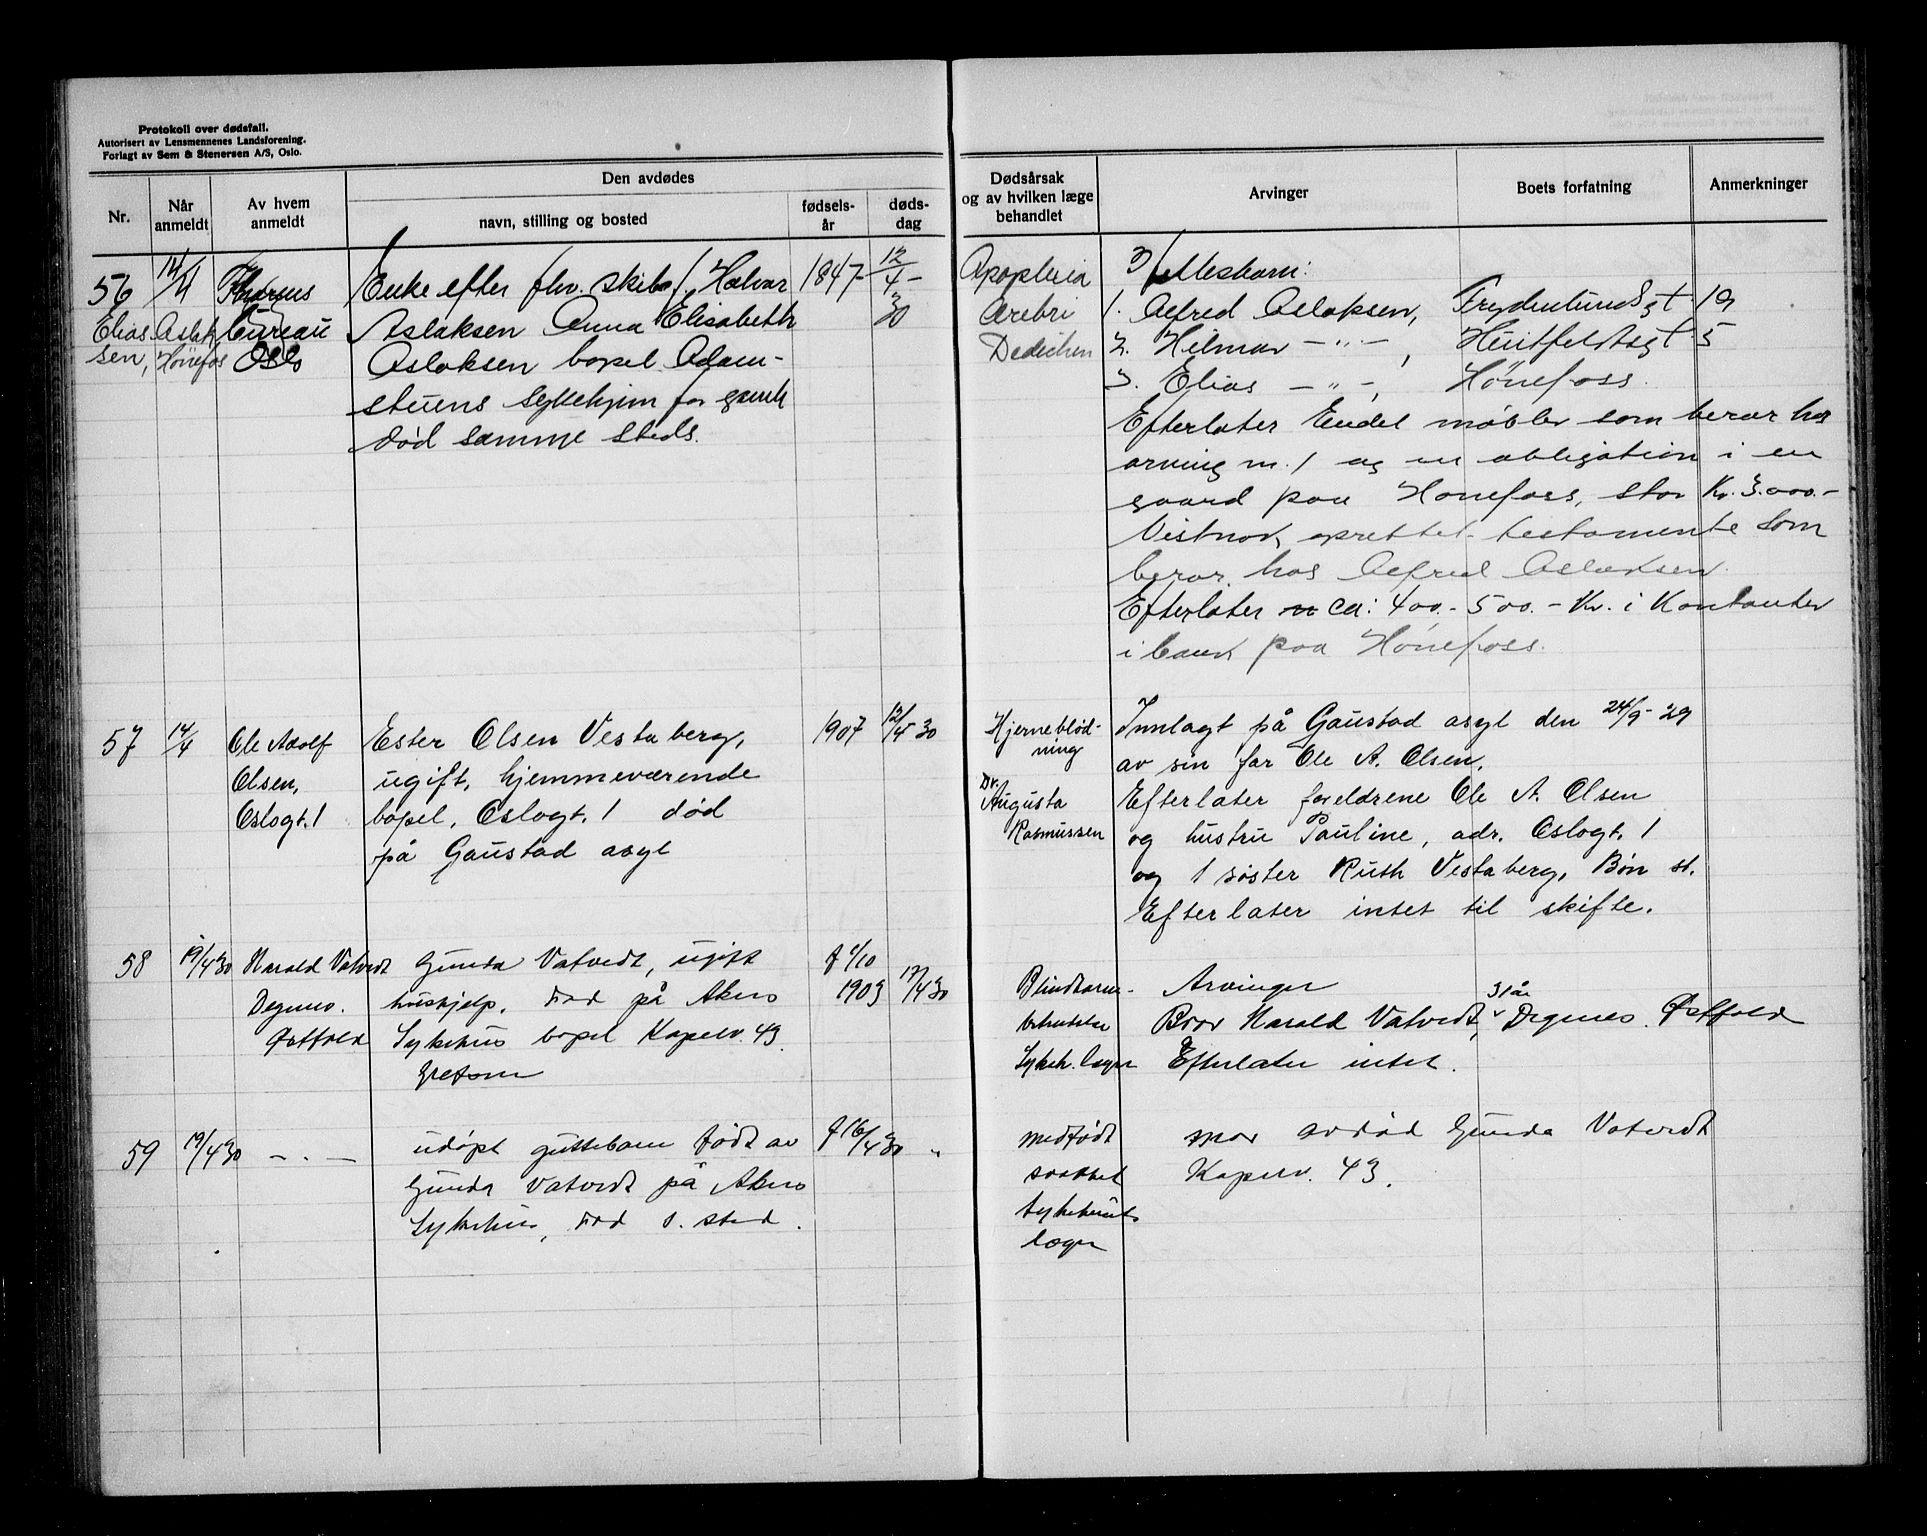 Protokoll over dødsfall.
Autorisert av Lensmennenes Landsforening.
Forlagt av Sem & Stenersen A/S, Oslo.
Nr.
Når anmeldt
Av hvem anmeldt
Den avdødes
navn, stilling og bosted
fødsels-år
døds-dag
Dødsårsak og av hvilken læge behandlet
Arvinger
Boets forfatning
Anmerkninger
56
14/4
bureau
Oslo
Elias Aslak
sen, Hønefos
Enke efter fhv. skibsf. Halvor
Aslaksen Anna Elisabeth
Aslaksen bopel Adam-
stuens sykehjem for gamle
død samme steds.
1847
12/4-30
Apoplexia
cerebri
Dedichen
3 fellesbarn:
1. Alfred Aslaksen, Frydenlundsgt 19
2. Hilmar -"-, Huitfeldtsgt 5
3. Elias -"-, Hønefoss.
Efterlater Endel møbler som beror hos
arving nr. 1 og en obligation i en
gaard paa Hønefoss, stor Kr. 3.000.-
Vistnok oprettet testamente som
beror hos Alfred Aslaksen.
Efterlater ca: 400.- 500.- Kr. i Kontanter
i bank paa Hønefoss.
57
14/4
Ole Adolf
Olsen,
Oslogt. 1
Ester Olsen Vestaberg,
ugift, hjemmeværende
bopel, Oslogt. 1 død
på Gaustad asyl
1907
12/4 30
Hjerneblød-
ning
Dr.
Augusta
Rasmussen
Innlagt på Gaustad asyl den 24/9-29
av sin far Ole A. Olsen.
Efterlater foreldrene Ole A. Olsen
og hustru Pauline, adr. Oslogt. 1
og 1 søster Ruth Vestaberg, Bøn st.
Efterlater intet til skifte.
58
19/4 30
Harald Vatvedt
Degernes.
Østfold
Gunda Vatvedt, ugift
hushjelp, død på Akers
Sykehus bopel Kapelv. 49.
Grefsen
f 6/10
1903
17/4 30
Blindtarm-
betendelse
Sykeh. læger
Arvinger
31 år
Bror Harald Vatvedt, Degernes. Østfold
Efterlater intet.
59
19/4 30
- . -
udøpt guttebarn født av
Gunda Vatvedt på Akers
Sykehus, død s. sted.
f 16/4 30
"
medfødt
svakhet
sykehusets
læger
mor avdød Gunda Vatvedt
Kapelv. 49.